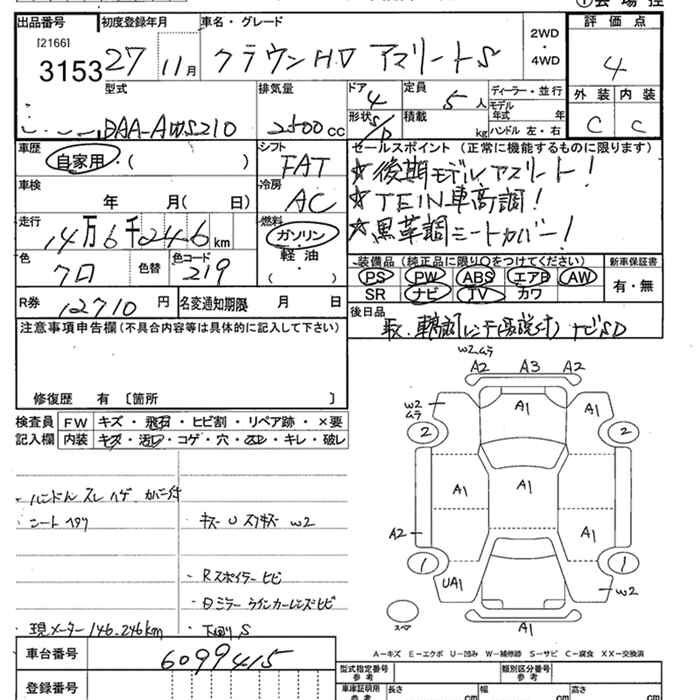 ①会場控
出品番号 初度登録年月 車名・グレード 2WD・4WD 評価点
[2166]
3153 27 11月 クラウンHV アスリートS 4
型式 排気量 ドア 定員 ディーラー・並行 外装 内装
4 5人 モデル年式 年
DAA-AWS210 2500cc 形状 S/D 積載 kg ハンドル 左・右 C C
車歴 シフト セールスポイント (正常に機能するものに限ります)
自家用・( ) FAT ☆後期モデルアスリート!
車検 冷房 ☆TEIN車高調!
年 月( 日) AC ☆黒革調シートカバー!
走行 燃料
14万6千246km ガソリン・軽油 装備品(純正品に限り○をつけてください) 新車保証書
色 クロ 色替 色コード 219 ( ) PS PW ABS エアB AW 有・無
SR ナビ TV カワ
R券 12710円 名変通知期限 月 日 後日品
注意事項申告欄(不具合内容等は具体的に記入して下さい) 取、車高調レンチ(取説付) ナビSD
修復歴 有 〔箇所 〕
検査員 FW キズ・飛石・ヒビ割・リペア跡・×要
記入欄 内装 キズ・汚レ・コゲ・穴・スレ・キレ・破レ
W2ムラ
A2 A3 A2
W2ムラ A1 A1
2 2
A1 A1 A1
A2
1 1
UA1 W2
A1
スペア
・ハンドルスレ ハゲ カバー付
・シートヘタリ ・キズ U スリキズ W2
・Rスポイラーヒビ
・Dミラーウインカーレンズヒビ
現メーター146,246km ・下回りS
A-キズ E-エクボ U-凹み W-補修跡 S-サビ C-腐食 XX-交換済
車台番号 6099415
型式指定番号 参考 類別区分番号 参考
登録番号 車庫証明用 参考 長さ cm 幅 cm 高さ cm